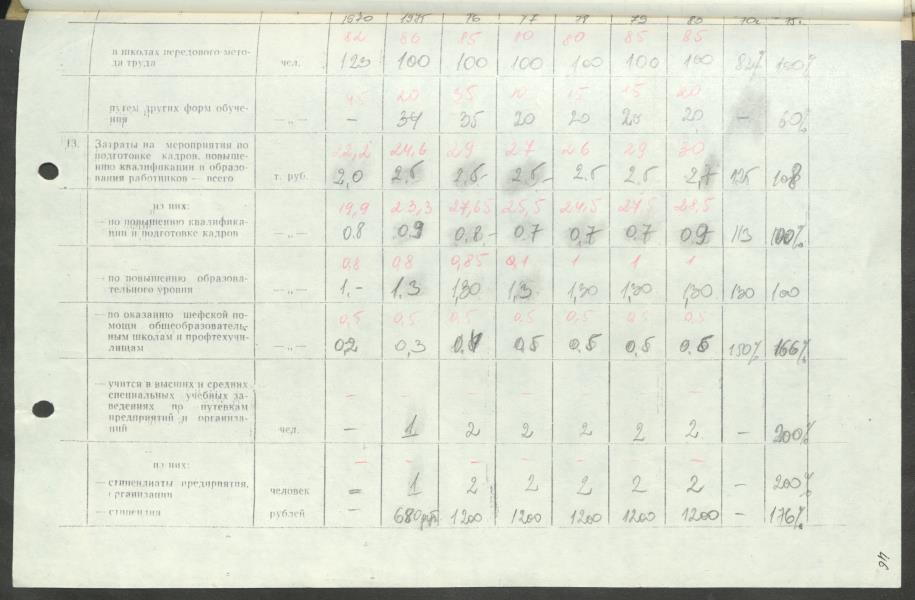 1970 1975 76 77 78 79 80 70г. 75г.
82 86 85 80 80 85 85
в школах передового мето-
да труда чел. 123 100 100 100 100 100 100 82% 100%
45 20 35 10 15 15 20
путем других форм обуче-
ния —„— – 34 35 20 20 20 20 – 60%
13. Затраты на мероприятия по
подготовке кадров, повыше-
нию квалификации и образо-
вания работников — всего т. руб.
22,2 24,6 29 27 26 29 30
2,0 2.5 2,5- 2.5- 2.5 2.5 2,7 125 108
из них:
19,9 23,3 27,65 25,5 24,5 27,5 28,5
— по повышению квалифика-
ции и подготовке кадров —„— 0.8 0,9 0,8- 0.7 0,7 0.7 0.9 113 100%
0,8 0,8 0,85 0,1 1 1 1
— по повышению образова-
тельного уровня —„— 1.– 1,3 1,30 1,3 1,30 1,30 1,30 130 100
0,5 0,5 0,5 0,5 0,5 0,5 0,5
— по оказанию шефской по-
мощи общеобразователь-
ным школам и профтехучи-
лищам —„— 0,2 0,3 0,5 0,5 0,5 0.5 150% 166%
— учится в высших и средних
специальных учебных за-
ведениях по путевкам
предприятий и организа-
ций чел. – 1 2 2 2 2 2 – 200%
из них:
— стипендиаты предприятия,
организации человек = 1 2 2 2 2 2 – 200%
— стипендия рублей – 680 руб. 1200 1200 1200 1200 1200 – 176%
46